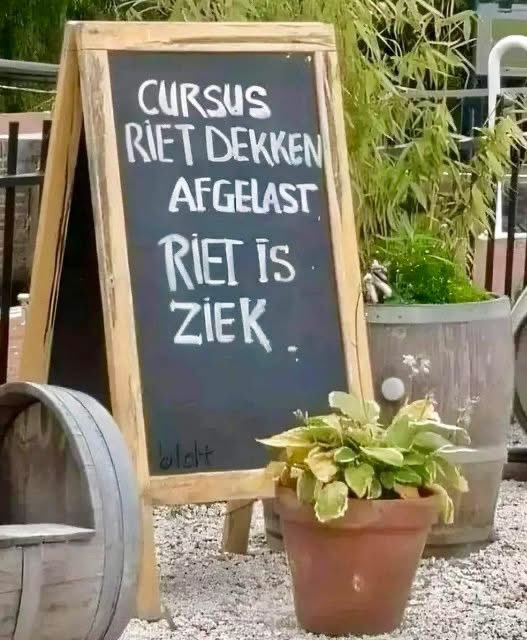 CURSUS
RIET DEKKEN
AFGELAST
RIET IS
ZIEK.